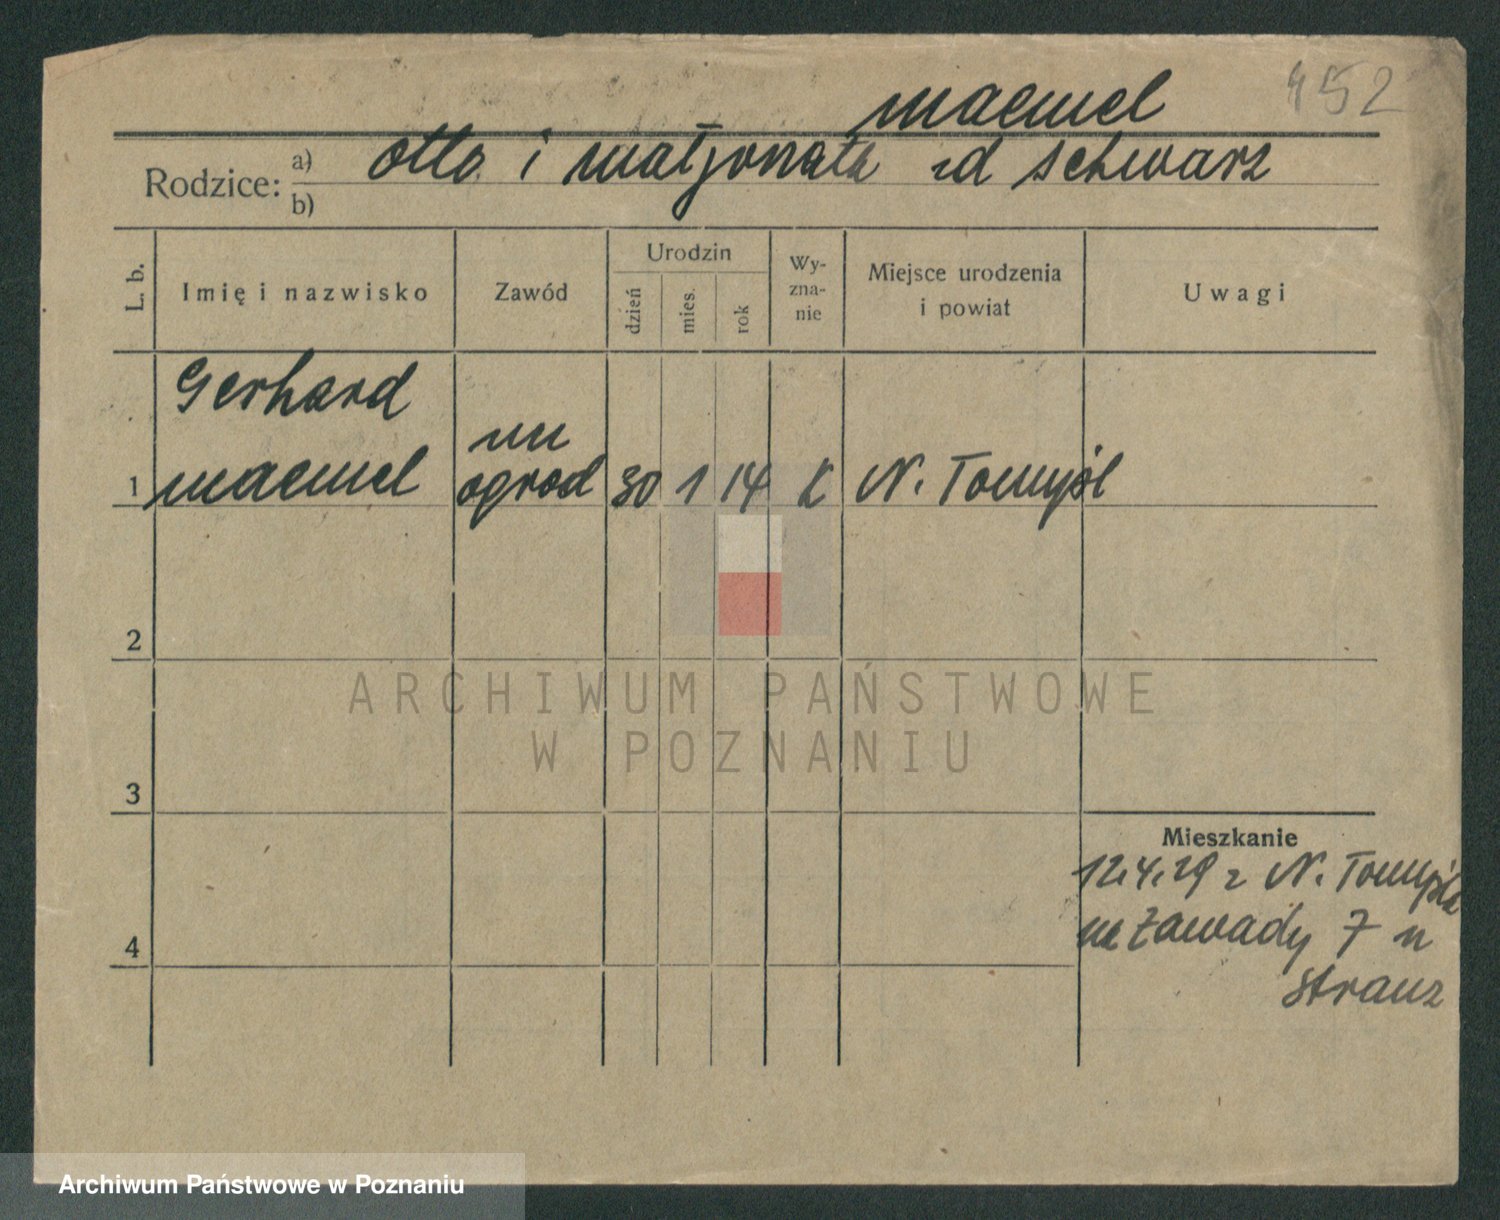 452
maennel
Rodzice: a) otto i małgorzata zd schwarz
b)
L. b.
Imię i nazwisko
Zawód
Urodzin
dzień
mies.
rok
Wy-
zna-
nie
Miejsce urodzenia
i powiat
Uwagi
Gerhard
uu
1 maennel ogrod 30 1 14 K N. Tomyśl
2
ARCHIWUM PAŃSTWOWE
W POZNANIU
3
Mieszkanie
12.4.29 z N. Tomyśla
na zawady 7 u
Strauz
4
Archiwum Państwowe w Poznaniu